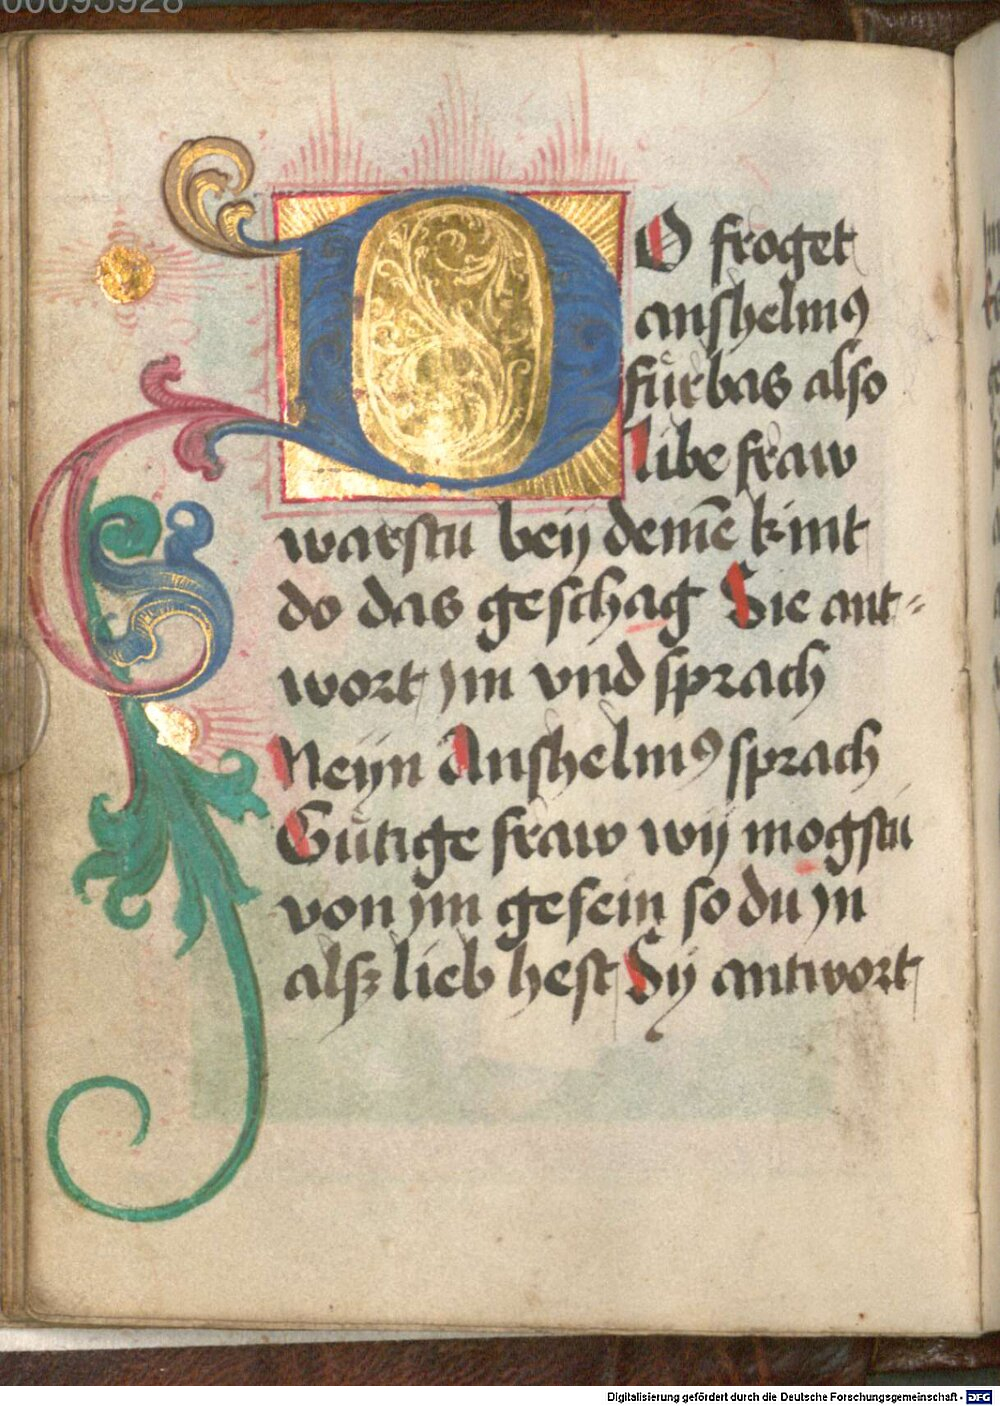 00095928
DO froget
anshelmꝰ
fürbas also
libe fraw
warstu beij deme̅ kint
do das geschag Sie ant=
wort jm vnd sprach
Neijn Anshelmꝰ sprach
Gütige fraw wij mogstu
von jm gesein so du jn
alsz lieb hest Sij antwort
Digitalisierung gefördert durch die Deutsche Forschungsgemeinschaft - DFG